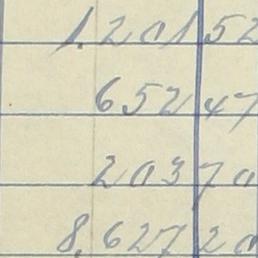 1,201 52
652 47
203 70
8,627 20